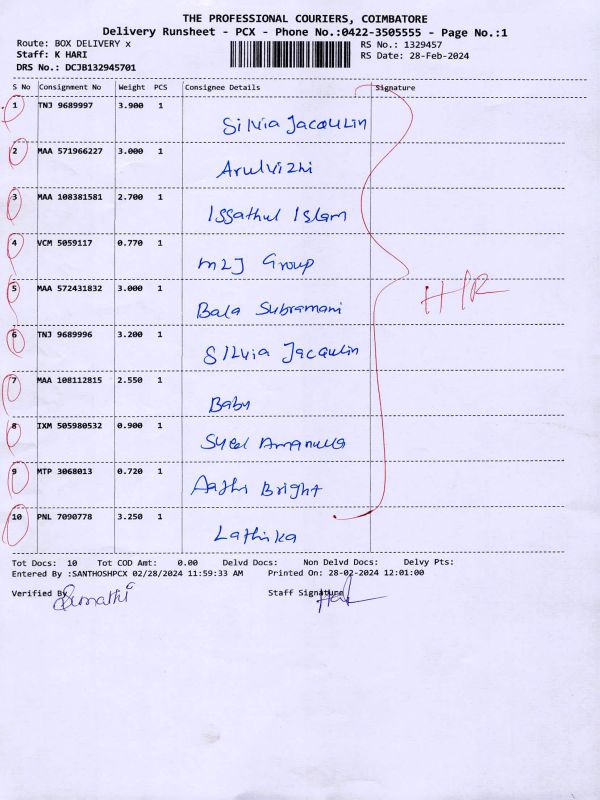 THE PROFESSIONAL COURIERS, COIMBATORE
Delivery Runsheet - PCX - Phone No.:0422-3505555 - Page No.:1
Route: BOX DELIVERY x RS No.: 1329457
Staff: K HARI RS Date: 28-Feb-2024
DRS No.: DCJB132945701
S No Consignment No Weight PCS Consignee Details Signature
1 TNJ 9689997 3.900 1
Silvia Jacqulin
2 MAA 571966227 3.000 1
Arulvizhi
3 MAA 108381581 2.700 1
Issathul Islam
4 VCM 5059117 0.770 1
M2J Group
5 MAA 572431832 3.000 1
H/R
Bala Subramani
6 TNJ 9689996 3.200 1
Silvia Jacqulin
7 MAA 108112815 2.550 1
Babu
8 IXM 505980532 0.900 1
Syed Amanulla
9 MTP 3068013 0.720 1
Aathi Bright
10 PNL 7090778 3.250 1
Lathika
Tot Docs: 10 Tot COD Amt: 0.00 Delvd Docs: Non Delvd Docs: Delvy Pts:
Entered By :SANTHOSHPCX 02/28/2024 11:59:33 AM Printed On: 28-02-2024 12:01:00
Verified By Staff Signature